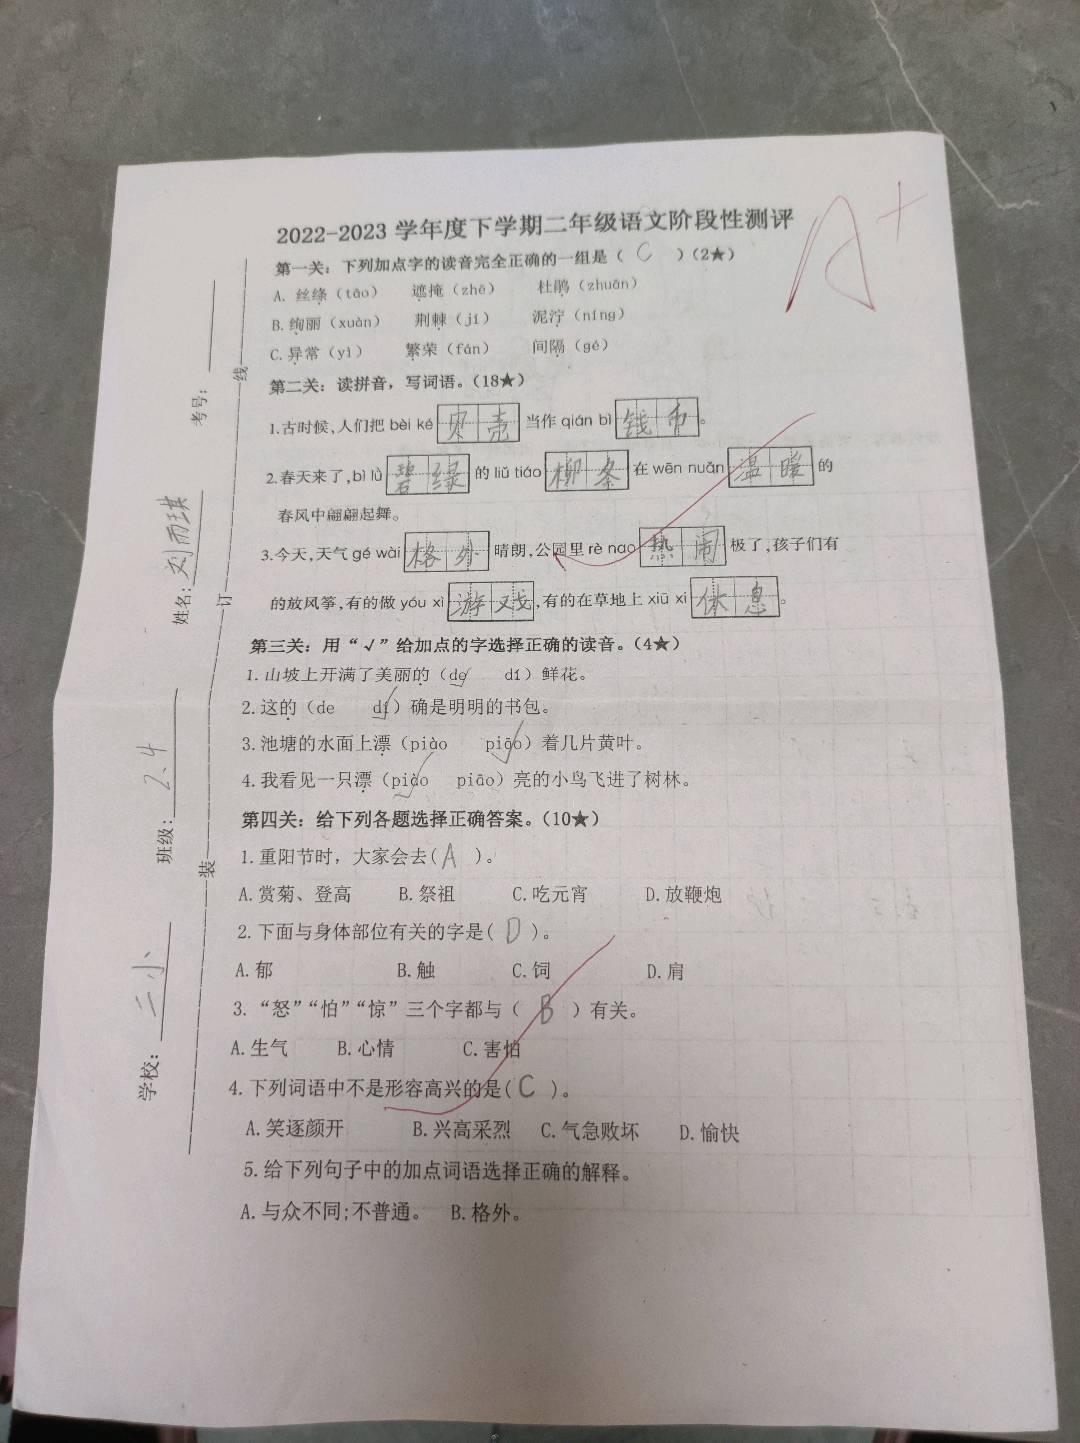 A+
2022-2023 学年度下学期二年级语文阶段性测评
第一关：下列加点字的读音完全正确的一组是（ C ）（2★）
A. 丝绦（tāo） 遮掩（zhē） 杜鹃（zhuān）
B. 绚丽（xuàn） 荆棘（jí） 泥泞（níng）
C. 异常（yì） 繁荣（fán） 间隔（gé）
第二关：读拼音，写词语。（18★）
1.古时候,人们把 bèi ké 贝壳 当作 qián bì 钱币。
2.春天来了,bì lǜ 碧绿 的 liǔ tiáo 柳条 在 wēn nuǎn 温暖 的
春风中翩翩起舞。
3.今天,天气 gé wài 格外 晴朗,公园里 rè nao 热闹 极了,孩子们有
的放风筝,有的做 yóu xì 游戏,有的在草地上 xiū xi 休息。
第三关：用“√”给加点的字选择正确的读音。（4★）
1. 山坡上开满了美丽的（de√ dí）鲜花。
2. 这的（de dí√）确是明明的书包。
3. 池塘的水面上漂（piào piāo√）着几片黄叶。
4. 我看见一只漂（piào√ piāo）亮的小鸟飞进了树林。
第四关：给下列各题选择正确答案。（10★）
1. 重阳节时，大家会去( A )。
A. 赏菊、登高 B. 祭祖 C. 吃元宵 D. 放鞭炮
2. 下面与身体部位有关的字是( D )。
A. 郁 B. 触 C. 饲 D. 肩
3. “怒”“怕”“惊”三个字都与（ B ）有关。
A. 生气 B. 心情 C. 害怕
4. 下列词语中不是形容高兴的是( C )。
A. 笑逐颜开 B. 兴高采烈 C. 气急败坏 D. 愉快
5. 给下列句子中的加点词语选择正确的解释。
A. 与众不同;不普通。 B. 格外。
学校: 三小
班级: 2、4
姓名: 刘雨琪
考号:
装
订
线